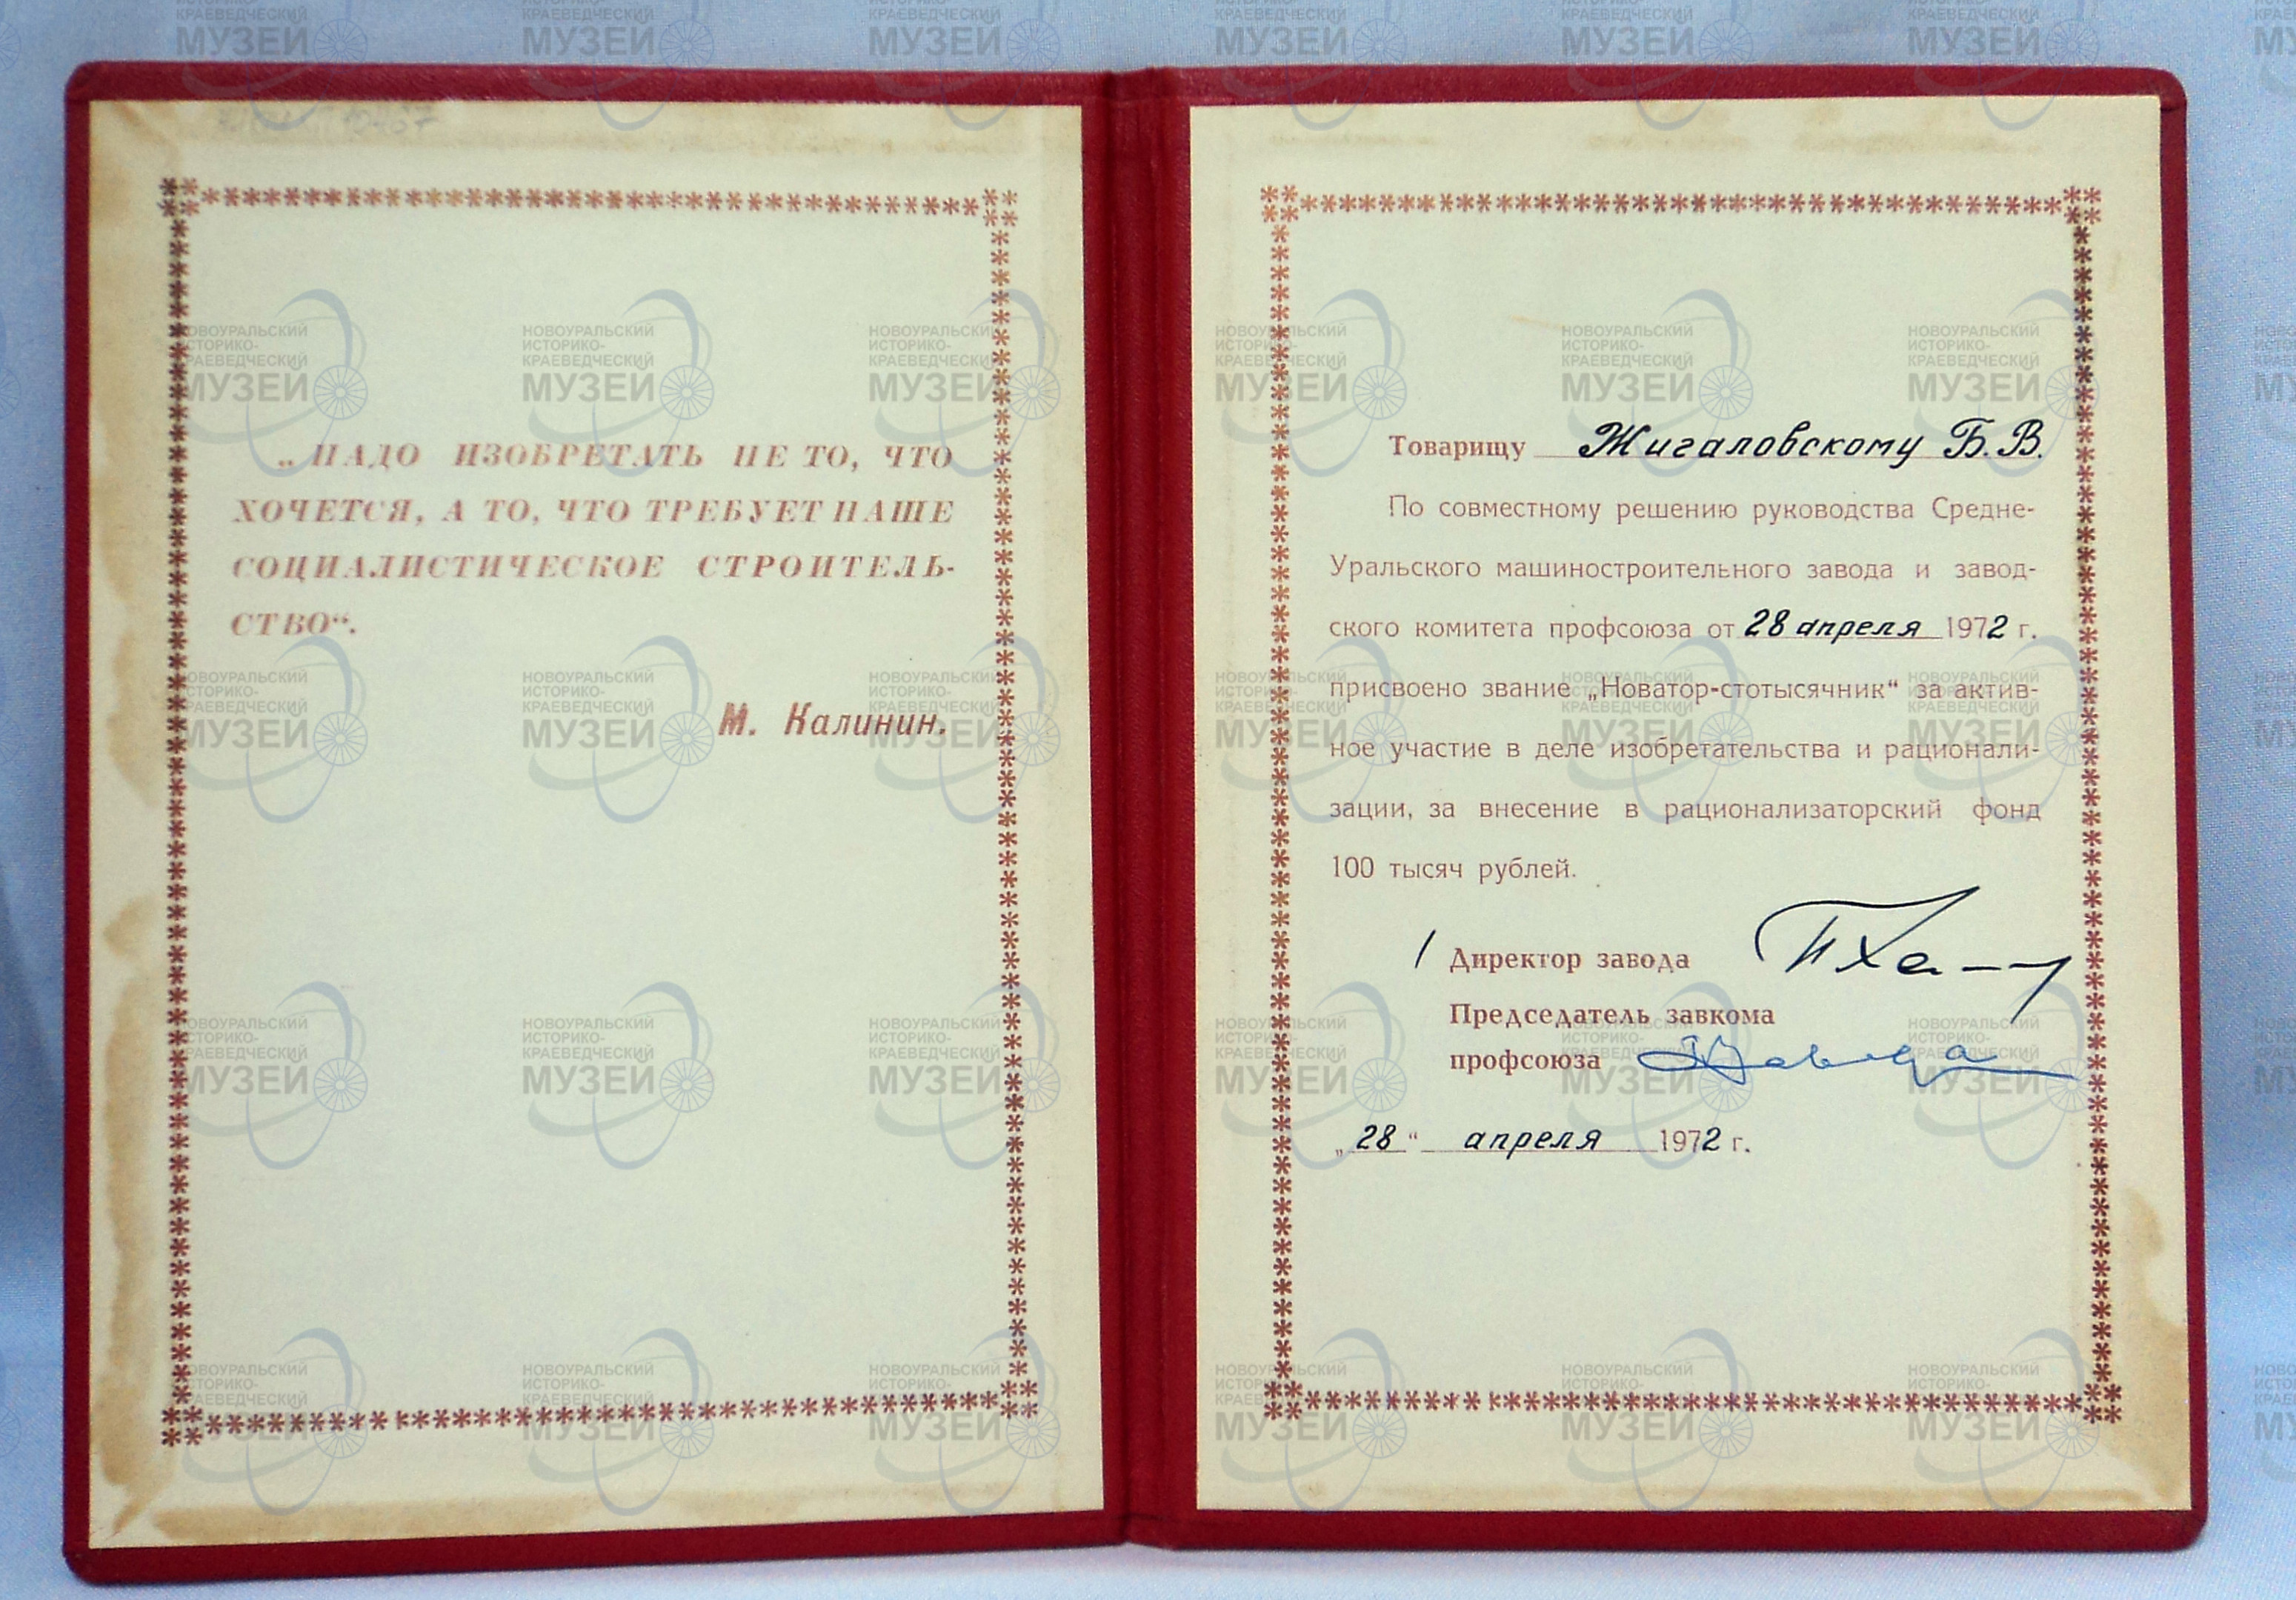 „НАДО ИЗОБРЕТАТЬ НЕ ТО, ЧТО
ХОЧЕТСЯ, А ТО, ЧТО ТРЕБУЕТ НАШЕ
СОЦИАЛИСТИЧЕСКОЕ СТРОИТЕЛЬ-
СТВО“.
М. Калинин.
Товарищу Жигаловскому Б.В.
По совместному решению руководства Средне-
Уральского машиностроительного завода и завод-
ского комитета профсоюза от 28 апреля 1972 г.
присвоено звание „Новатор-стотысячник“ за актив-
ное участие в деле изобретательства и рационали-
зации, за внесение в рационализаторский фонд
100 тысяч рублей.
Директор завода
Председатель завкома
профсоюза
„28“ апреля 1972 г.
НОВОУРАЛЬСКИЙ
ИСТОРИКО-
КРАЕВЕДЧЕСКИЙ
МУЗЕЙ